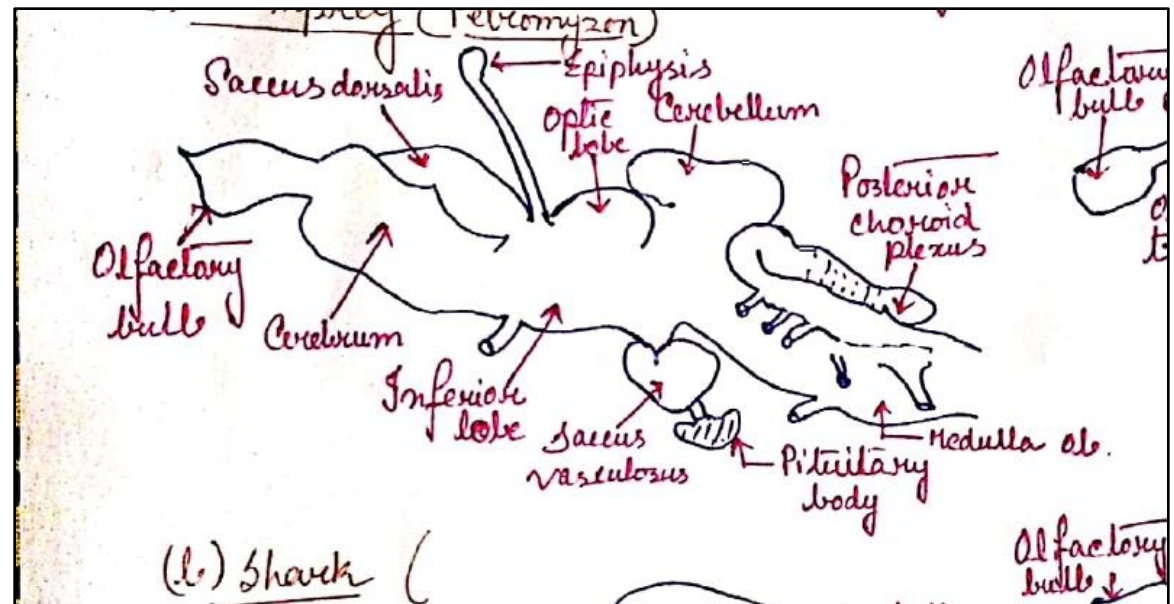 (Petromyzon)
Saccus dorsalis
Epiphysis
Optic
lobe
Cerebellum
Olfactory
bulb
Posterior
choroid
plexus
Olfactory
bulb
Cerebrum
Inferior
lobe
Saccus
vasculosus
Pituitary
body
Medulla ob.
(b) Shark (
Olfactory
bulb